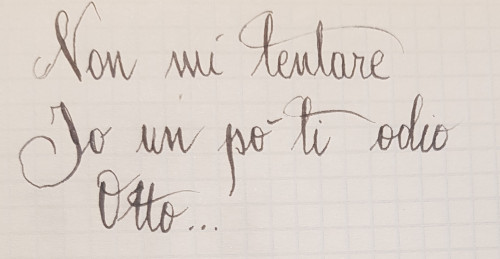 Non mi tentare
Io un pò ti odio
Otto...